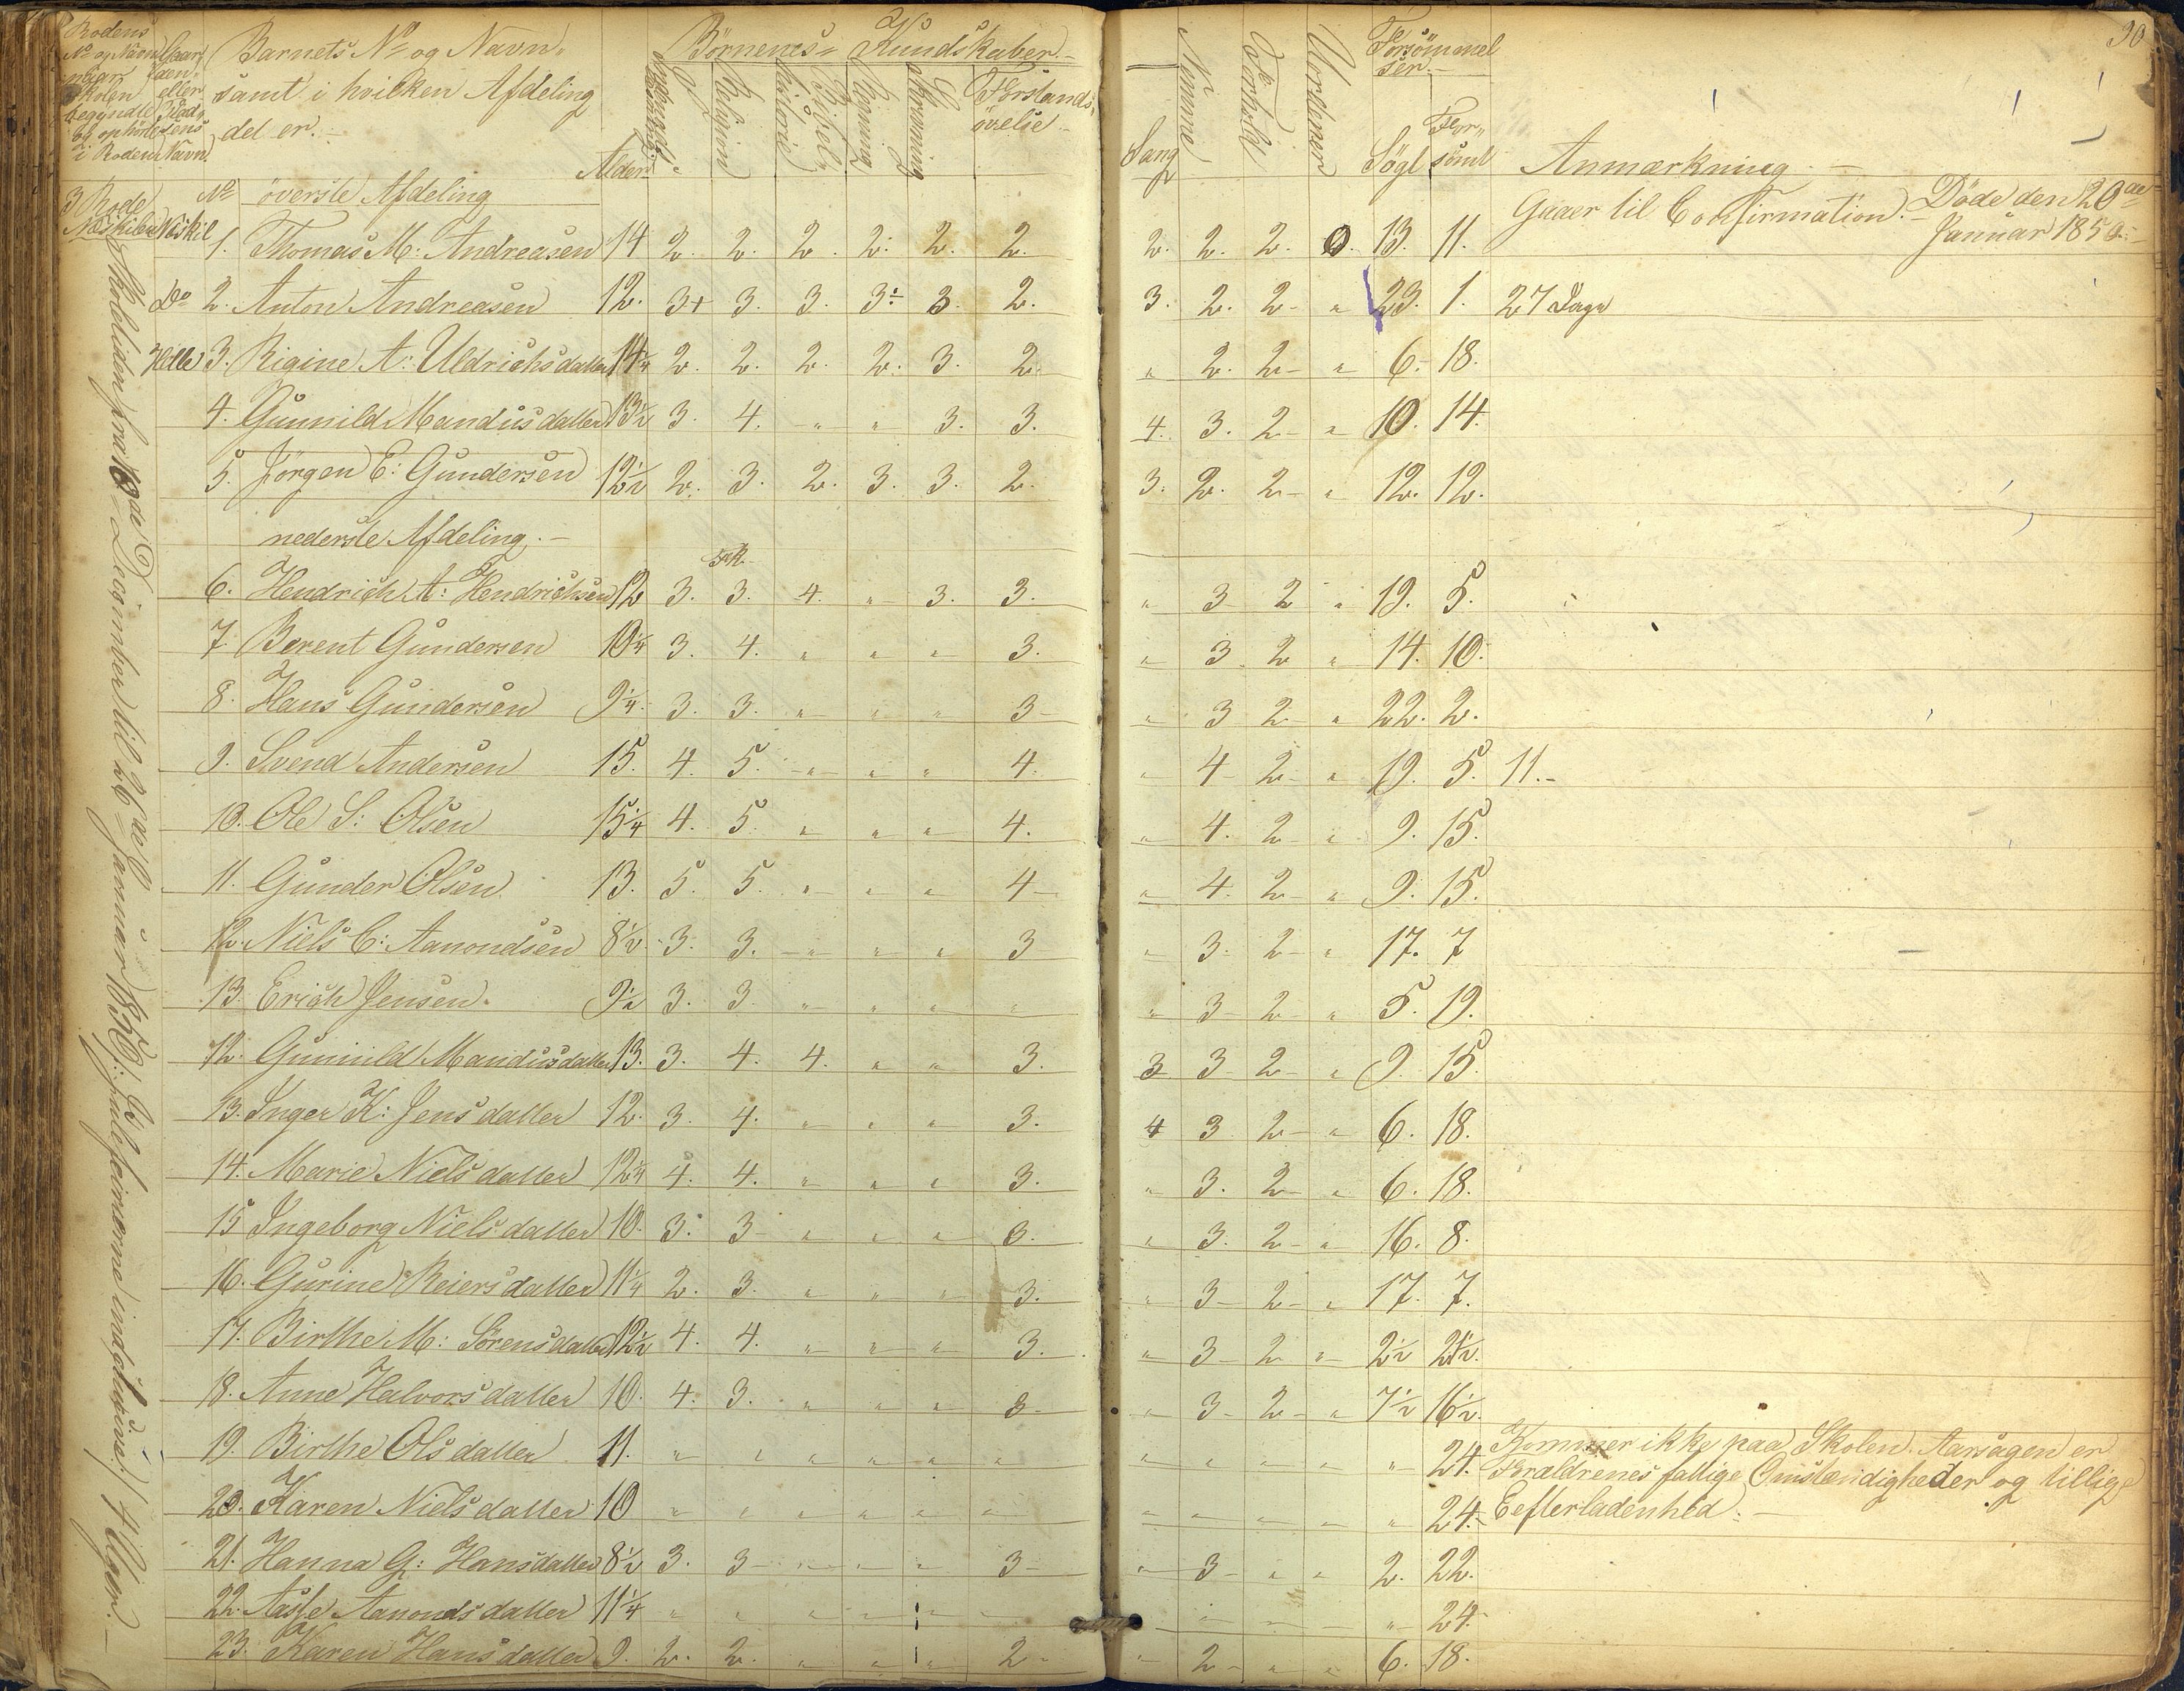 90
Rodens
No og Navn
naar
Skolen
begyndte
og ophörte
i Roden
Gaar-
den-
eller
Plad-
sens
Navn.
Barnets No og Navn,
samt i hvilken Afdeling
det er.-
Alder.
Börnenes Kundskaber.-
Religion
Bibel-
historie
Regning
Skrivning
Forstands-
övelse.-
Sang
Nemme
Forhold
Uordener
Forsömmel
ser.-
Sögt
For-
sömt
Anmærkning.-
3 Rode
Næskilen
Næskil
No överste Afdeling
1. Thomas M: Andreasen 14 2. 2. 2. 2. 2. 2. 2. 2. 2. 0. 13. 11. Gaaer til Confirmation.- Döde den 20de
Januar 1850.-
Do 2. Anton Andreasen 12. 3+ 3. 3. 3÷ 3. 2. 3. 2. 2- " 23. 1. 27 Dage
Helle 3. Rigine A: Uldrichsdatter 14¼ 2. 2. 2. 2. 3. 2. " 2. 2- " 6. 18.
4. Gunnild Mandusdatter 13½ 3. 4. " " 3. 3. 4. 3. 2- " 10. 14.
5. Jörgen C: Gundersen 12½ 2. 3. 2. 3. 3. 2. 3. 2. 2- " 12. 12.
nederste Afdeling.-
6. Hendrich A: Hendrichsen 12 3. 3. 4. " 3. 3. " 3 2 " 19. 5.
7. Berent Gundersen 10¼ 3. 4. " " " 3. " 3. 2 " 14. 10.
8. Hans Gundersen 9¼ 3. 3. " " " 3- " 3 2 " 22. 2.
9. Svend Andersen 15. 4. 5. " " " 4. " 4 2- " 19. 5. 11.-
10. Ole S: Olsen 15¼ 4. 5. " " " 4. " 4. 2 " 9. 15.
11. Gunder Olsen 13. 5. 5. " " " 4- " 4. 2 " 9. 15.
12. Niels C: Aanondsen 8½ 3. 3. " " " 3 " 3. 2- " 17. 7
13. Erich Jensen. 9½ 3. 3. " " " " " 3 2 " 5. 19.
12. Gunnild Mandusdatter 13. 3. 4. 4. " " 3. 3 3 2- " 9. 15.
13. Inger K: Jensdatter 12. 3. 4. " " " 3. 4 3 2- " 6. 18.
14. Marie Nielsdatter 12¼ 4. 4. " " " 3. " 3. 2- " 6. 18.
15 Ingeborg Nielsdatter 10. 3. 3- " " " 3. " 3. 2- " 16. 8.
16. Gurine Reiersdatter 11¼ 2. 3. " " " 3. " 3- 2- " 17. 7.
17. Birthe M: Sörensdatter 12½ 4. 4. " " " 3. " 3- 2 " 2½ 21½.
18. Anne Halvorsdatter 10. 4. 3. " " " 3- " 3- 2- " 7½ 16½.
19. Birthe Olsdatter 11. " " " " " " " " " " " 24. Kommer ikke paa Skolen. Aarsagen er
Forældrenes fattige Omstændigheder og tillige
20. Karen Nielsdatter 10 " " " " " " " " " " " 24. Eefterladenhed.-
21. Hanna G: Hansdatter 8½ 3. 3- " " " 3- " 3- " " 2. 22.
22. Aasse Aanondsdatter 11¼ " " " " " " " " " " 24.
23. Karen Hansdatter 9. 2. 2. " " " 2- " 2- " " 6. 18.
Skoletiden fra 10de December til 26de Januar 1850 / Julefeirierne inclusive / 4 Uger.-